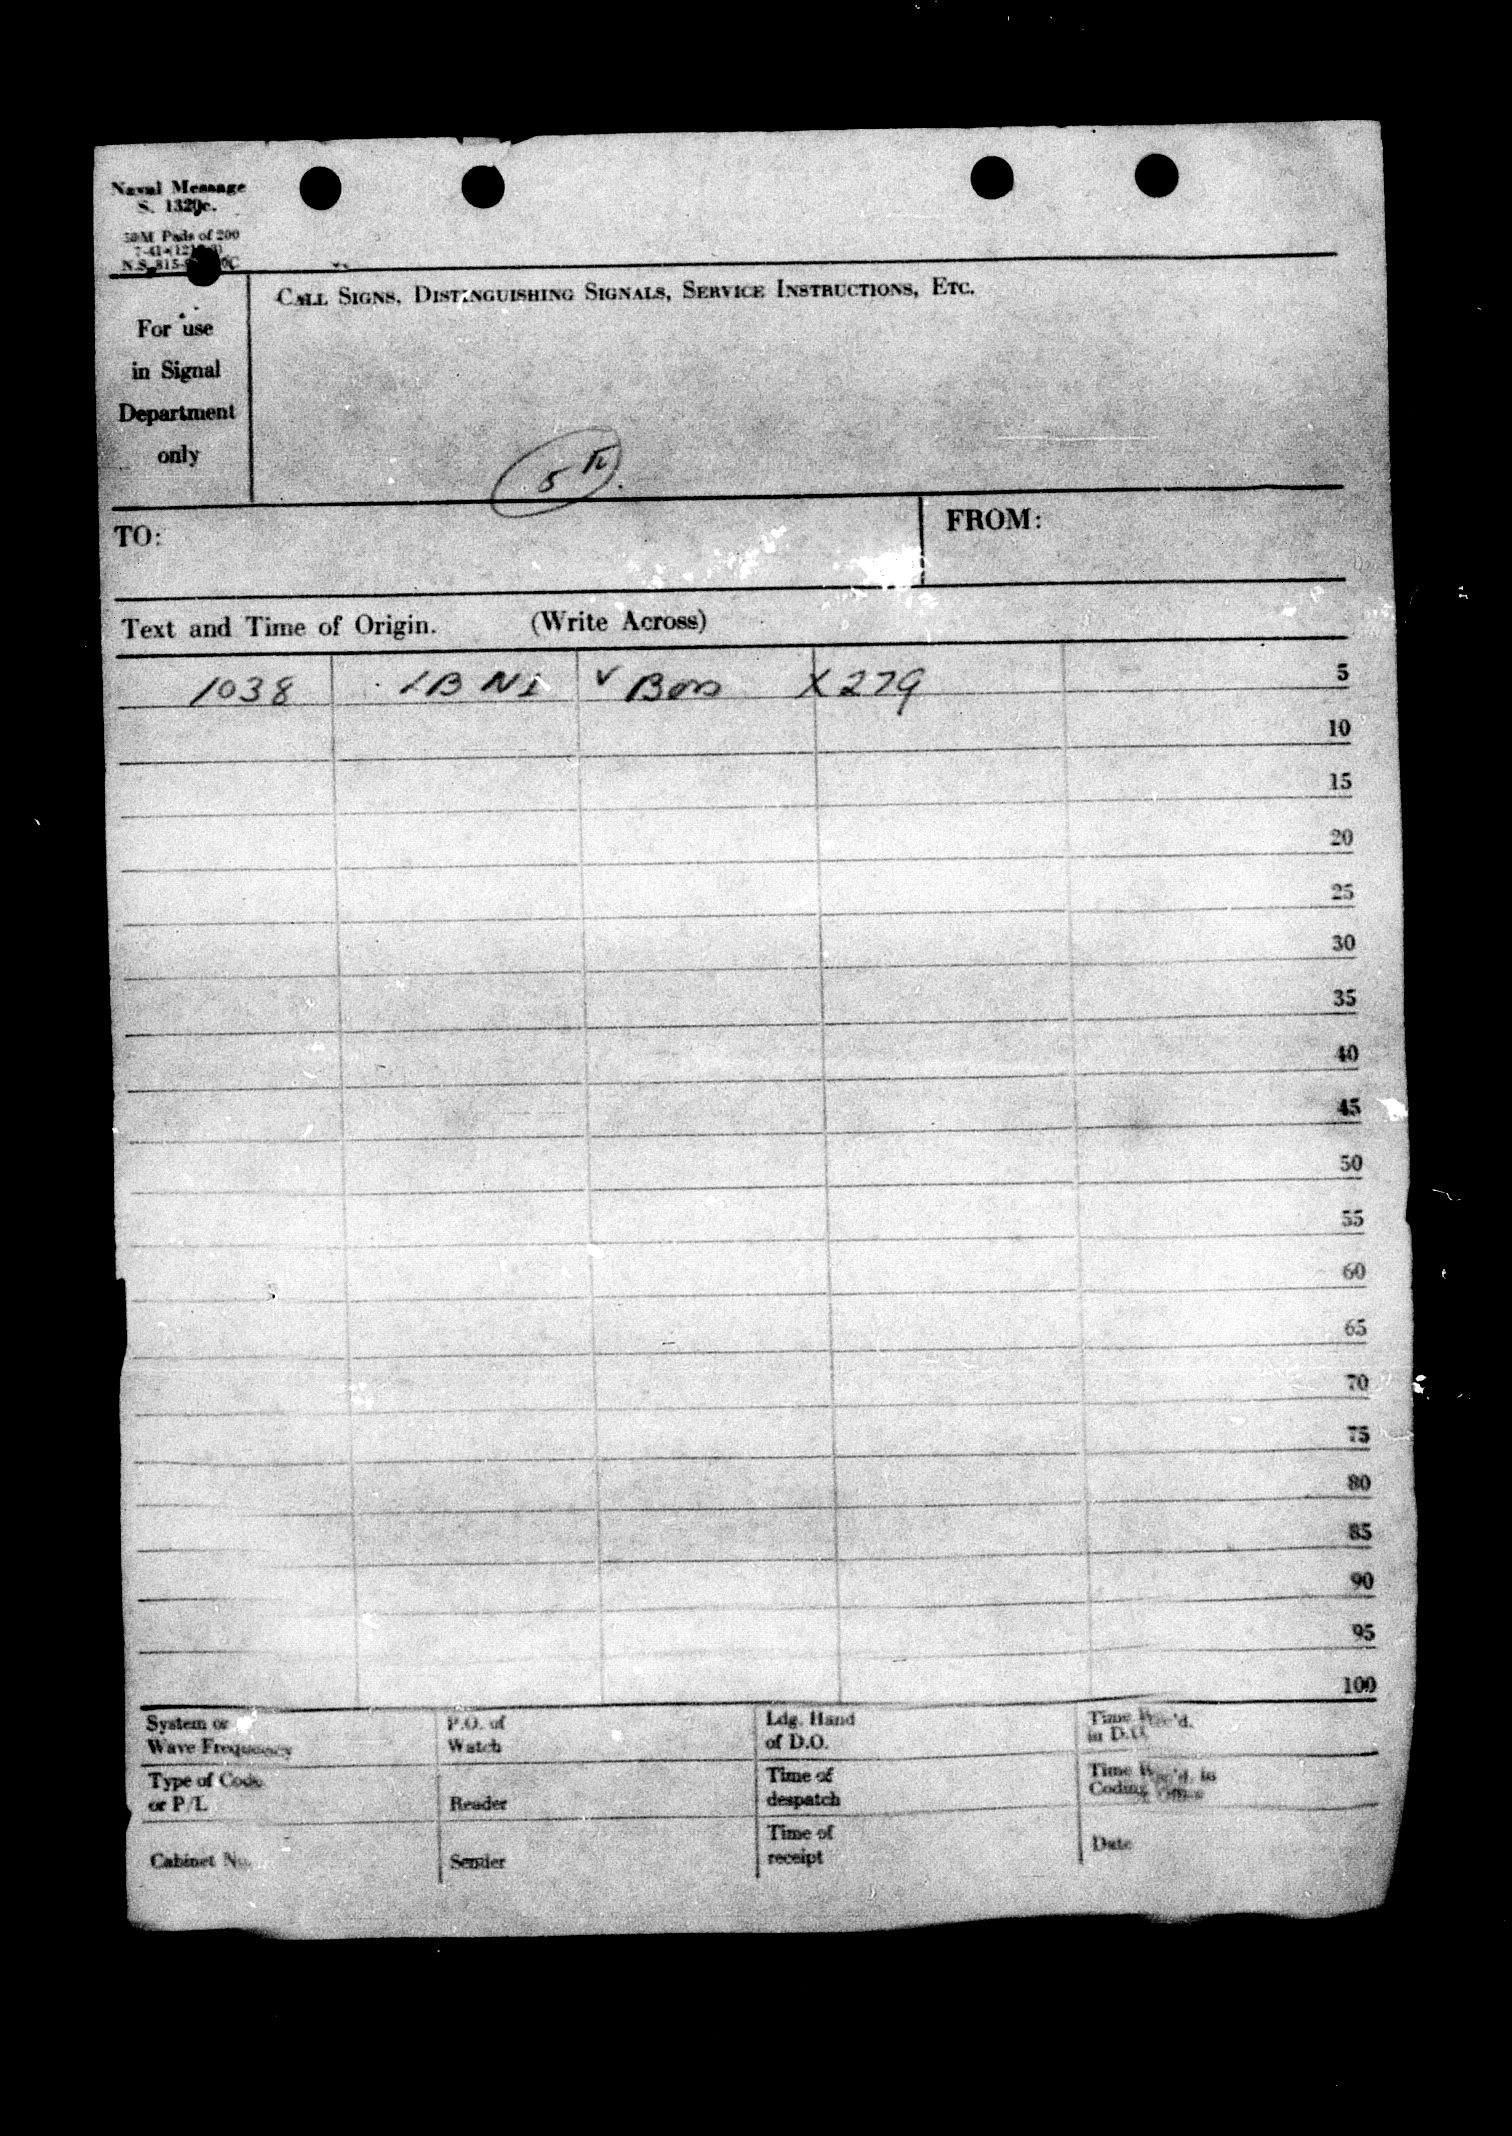 Naval Message
S. 1320c.
50M Pads of 200
N.S. 815-
CALL SIGNS, DISTINGUISHING SIGNALS, SERVICE INSTRUCTIONS, ETC.
For use
in Signal
Department
only
5
TO:
FROM:
Text and Time of Origin. (Write Across)
1038 X 279 5
10
15
20
25
30
35
40
45
50
55
60
65
70
75
80
85
90
95
100
System or
Wave Frequency
P.O. of
Watch
Ldg. Hand
of D.O.
Time Rec'd.
in D.O.
Type of Code
or P/L
Reader
Time of
despatch
Time Rec'd. in
Coding Office
Cabinet No.
Sender
Time of
receipt
Date